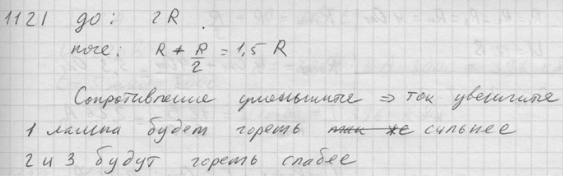 1121 до: 2R.
после: R + R/2 = 1,5 R
Сопротивление уменьшится ⇒ ток увеличится
1 лампа будет гореть так же сильнее
2 и 3 будут гореть слабее